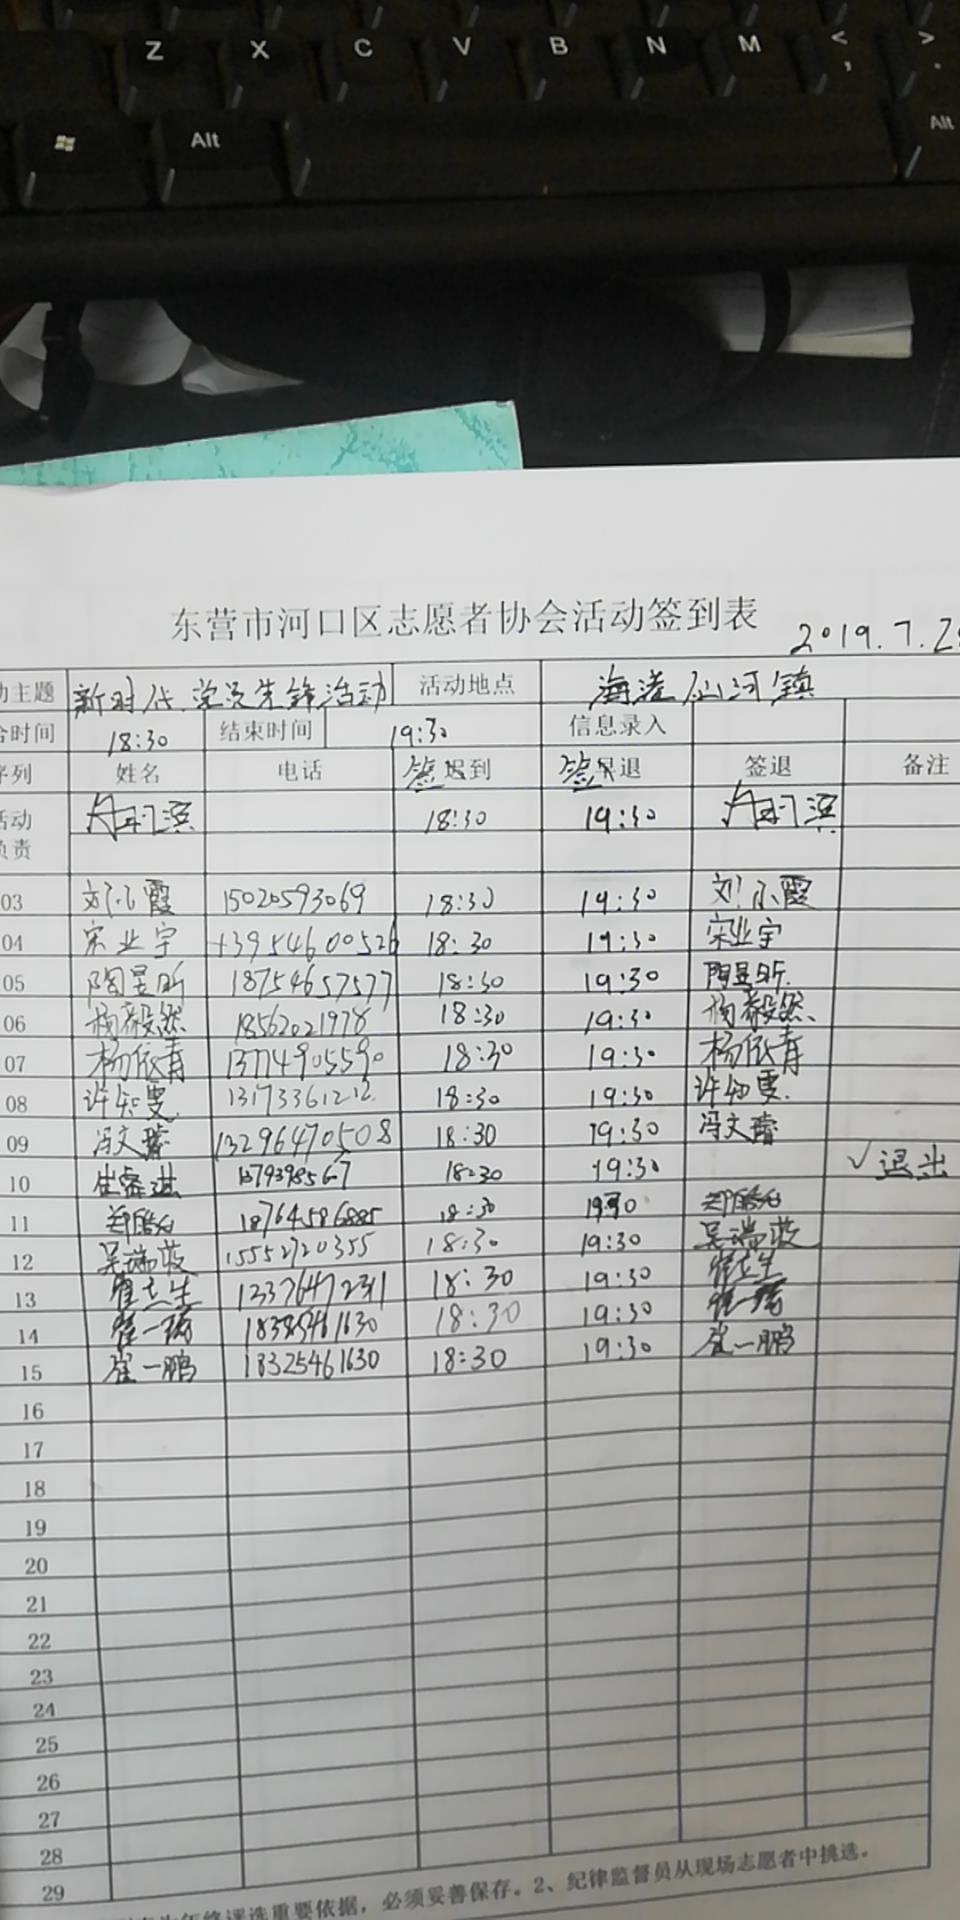 Z X C V B N M < ,  > .
Alt Alt
东营市河口区志愿者协会活动签到表
2019.7.2
动主题 新时代党员先锋活动 活动地点 海港仙河镇
合时间 18:30 结束时间 19:30 信息录入
序列 姓名 电话 签到 签退 签退 备注
活动 18:30 19:30
负责
03 刘小霞 15020593069 18:30 19:30 刘小霞
04 宋业宇 13954600526 18:30 19:30 宋业宇
05 陶昱昕 18754657577 18:30 19:30 陶昱昕
06 杨毅然 18562021978 18:30 19:30 杨毅然
07 杨依青 13714905590 18:30 19:30 杨依青
08 许知雯 13173361212 18:30 19:30 许知雯
09 冯文馨 13296470508 18:30 19:30 冯文馨
10 18:30 19:30 √退出
11 18764586885 18:30 19:30
12 吴瑞蔹 15552720355 18:30 19:30 吴瑞蔹
13 崔志生 18:30 19:30 崔志生
14 崔一 18:30 19:30 崔一
15 崔一鹏 18325461630 18:30 19:30 崔一鹏
16
17
18
19
20
21
22
23
24
25
26
27
28
29
年终评选重要依据，必须妥善保存。2、纪律监督员从现场志愿者中挑选。